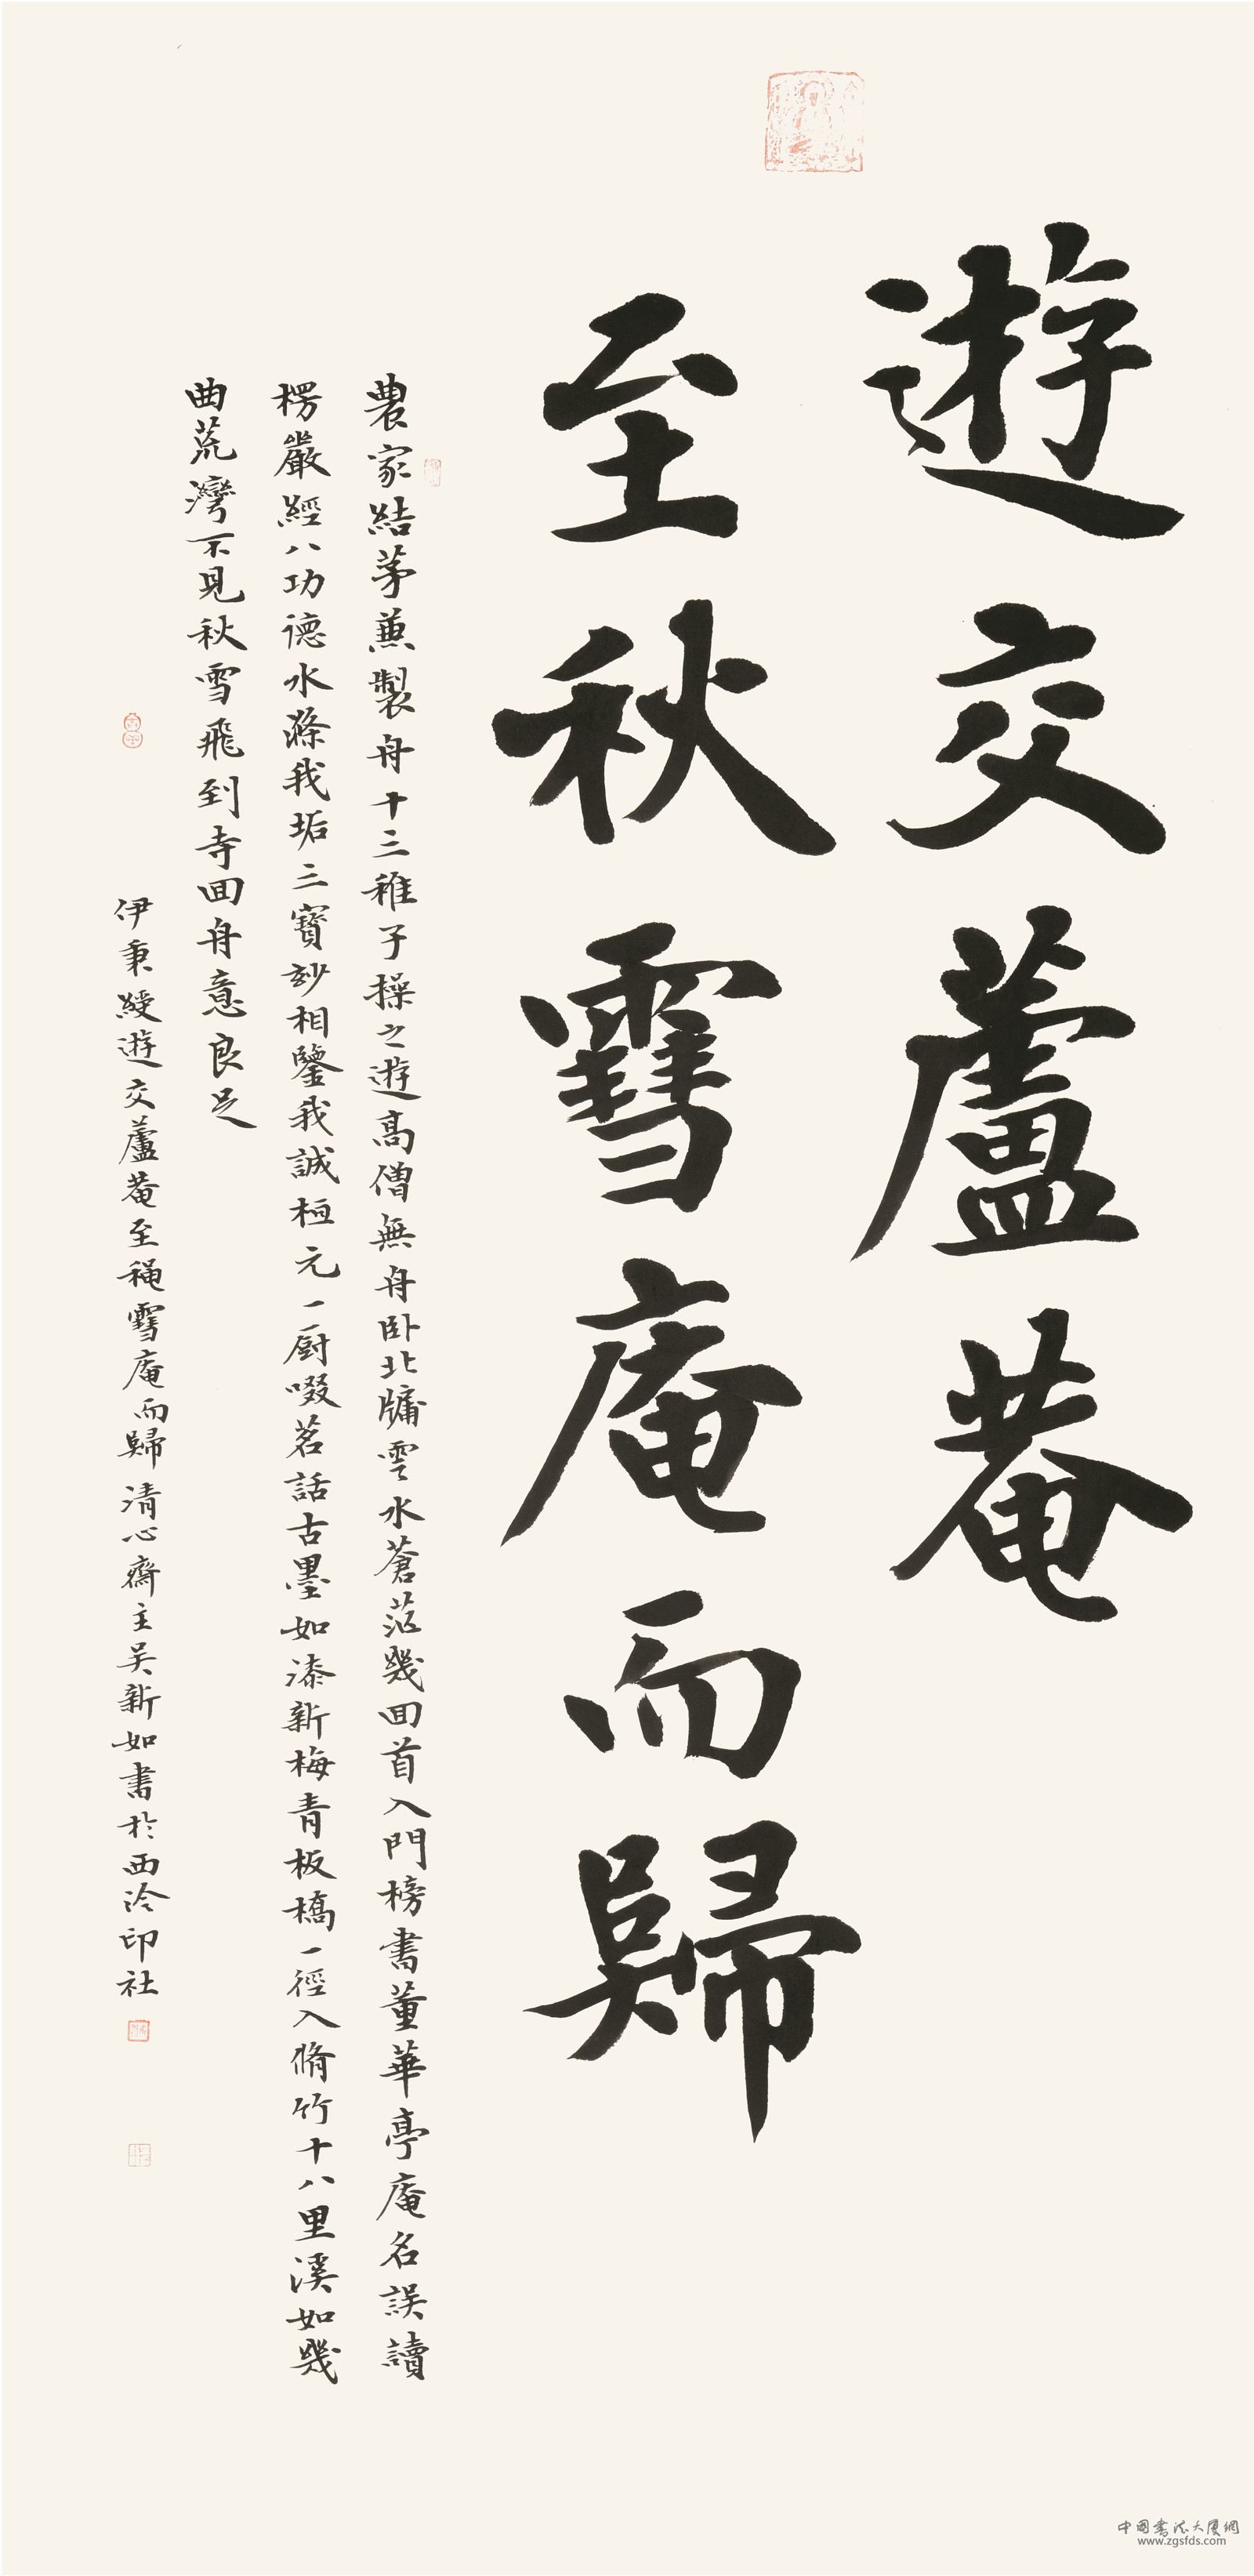 遊交蘆菴
至秋雪庵而歸
農家結茅兼製舟十三稚子操之遊高僧無舟卧北牖雲水蒼茫幾回首入門榜書董華亭庵名誤讀
楞嚴經八功德水滌我垢三寶妙相鑒我誠桓元一厨啜茗話古墨如漆新梅青板橋一徑入脩竹十八里溪如幾
曲荒灣不見秋雪飛到寺回舟意良足
伊秉綬遊交蘆菴至秋雪庵而歸清心齋主吴新如書於西泠印社
中國書法大厦網
www.zgsfds.com